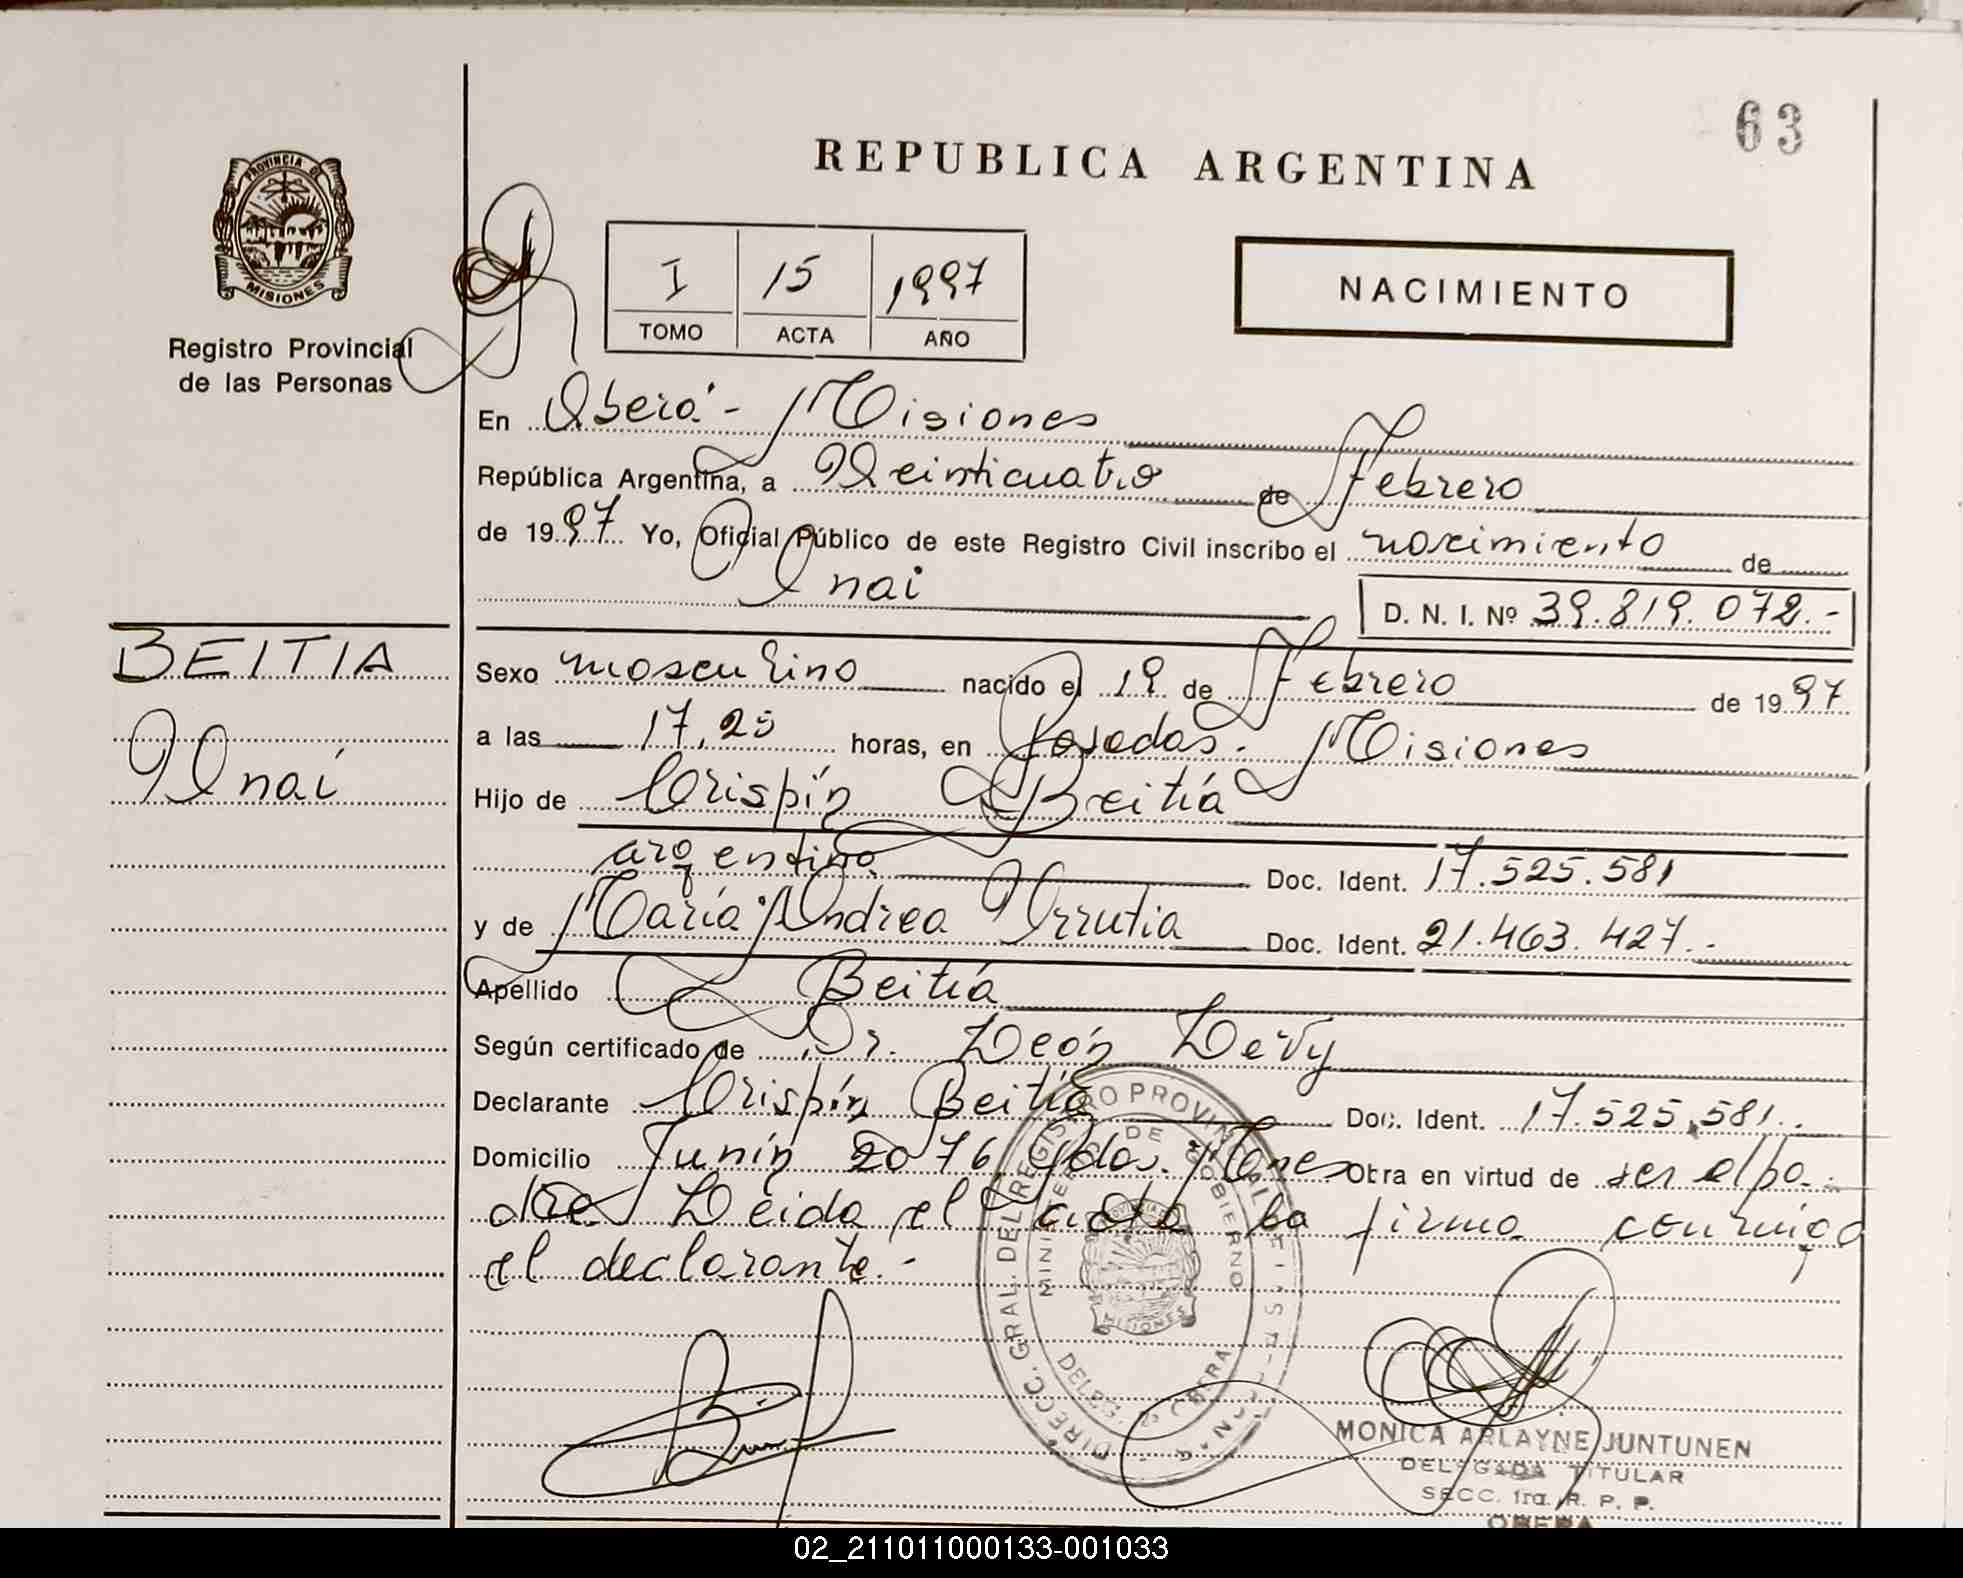 63
REPUBLICA ARGENTINA
PROVINCIA DE
MISIONES
Registro Provincial
de las Personas
I 15 1997
TOMO ACTA AÑO
NACIMIENTO
En Oberá - Misiones
República Argentina, a Veinticuatro de Febrero
de 1997 Yo, Oficial Público de este Registro Civil inscribo el nacimiento de
Unai
D. N. I. Nº 39.819.072.-
BEITIA
Unai
Sexo masculino nacido el 19 de Febrero de 1997
a las 17,25 horas, en Posadas. Misiones
Hijo de Crispín Beitía
argentino Doc. Ident. 17.525.581
y de María Andrea Urrutia Doc. Ident. 21.463.427.-
Apellido Beitía
Según certificado de Dr. León Levy
Declarante Crispín Beitía Doc. Ident. 17.525.581.
Domicilio Junín 2076 Pdas. Mnes Obra en virtud de ser el pa-
dre. Leida el acta la firma conmigo
el declarante.-
DIRECC. GRAL. DEL REGISTRO PROVINCIAL DE LAS PERSONAS
MINISTERIO DE GOBIERNO
MISIONES
MONICA ARLAYNE JUNTUNEN
DELEGADA TITULAR
SECC. 1ra. R. P. P.
OBERA
02_211011000133-001033